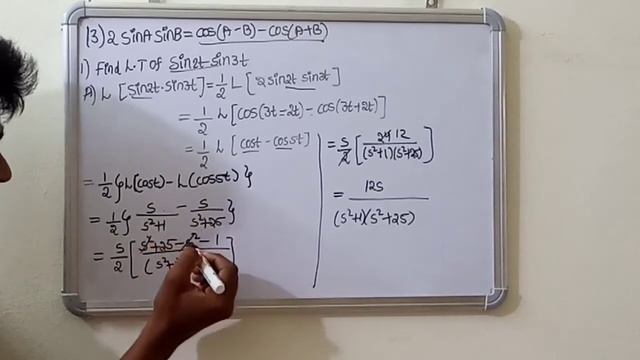 13) 2 sinA sinB = cos(A-B) - cos(A+B)
1) Find L.T of sin2t sin3t
A) L [sin2t·sin3t] = 1/2 L [2 sin2t sin3t]
= 1/2 L [cos(3t-2t) - cos(3t+2t)]
= 1/2 L [cost - cos5t]
= 1/2 {L(cost) - L(cos5t)}
= 1/2 { s/s²+1 - s/s²+25 }
= s/2 [ s²+25-s²-1 / (s²+
= s/2 [ 24 12 / (s²+1)(s²+25) ]
= 12s / (s²+1)(s²+25)